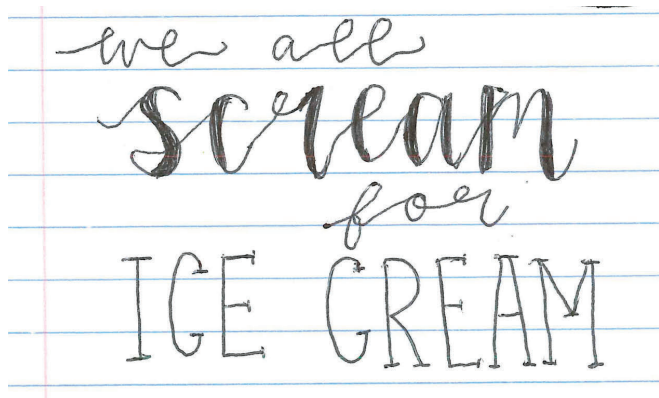 we all
scream
for
ICE CREAM